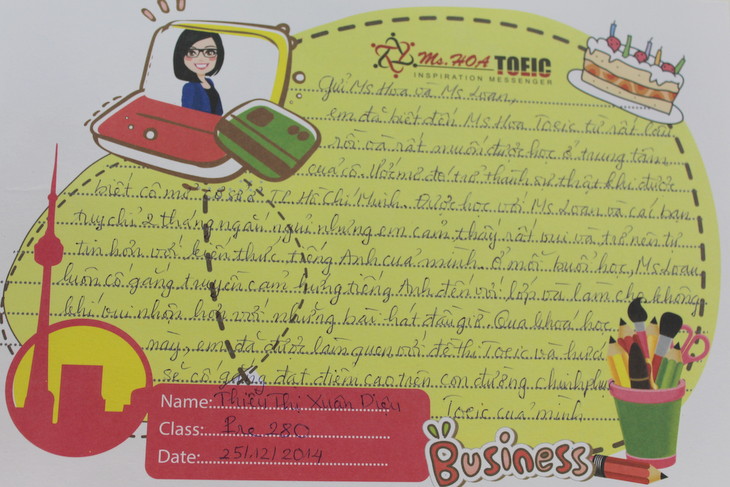 Ms. HOA TOEIC
INSPIRATION MESSENGER
Gửi Ms Hoa và Ms Loan,
em đã biết đến Ms Hoa Toeic từ rất lâu
rồi và rất muốn được học ở trung tâm
của cô. Ước mơ đó trở thành sự thật khi được
biết cô mở cơ sở ở TP Hồ Chí Minh. Được học với Ms Loan và các bạn
tuy chỉ 2 tháng ngắn ngủi nhưng em cảm thấy rất vui và trở nên tự
tin hơn với kiến thức tiếng Anh của mình. Ở mỗi buổi học, Ms Loan
luôn cố gắng truyền cảm hứng tiếng Anh đến với lớp và làm cho không
khí vui nhộn hơn với những bài hát đầu giờ. Qua khoá học
này, em đã được làm quen với đề thi Toeic và hứa
sẽ cố gắng đạt điểm cao trên con đường chinh phục
Toeic của mình
Name: Thiều Thị Xuân Diệu
Class: Pre 280
Date: 25/12/2014
Business